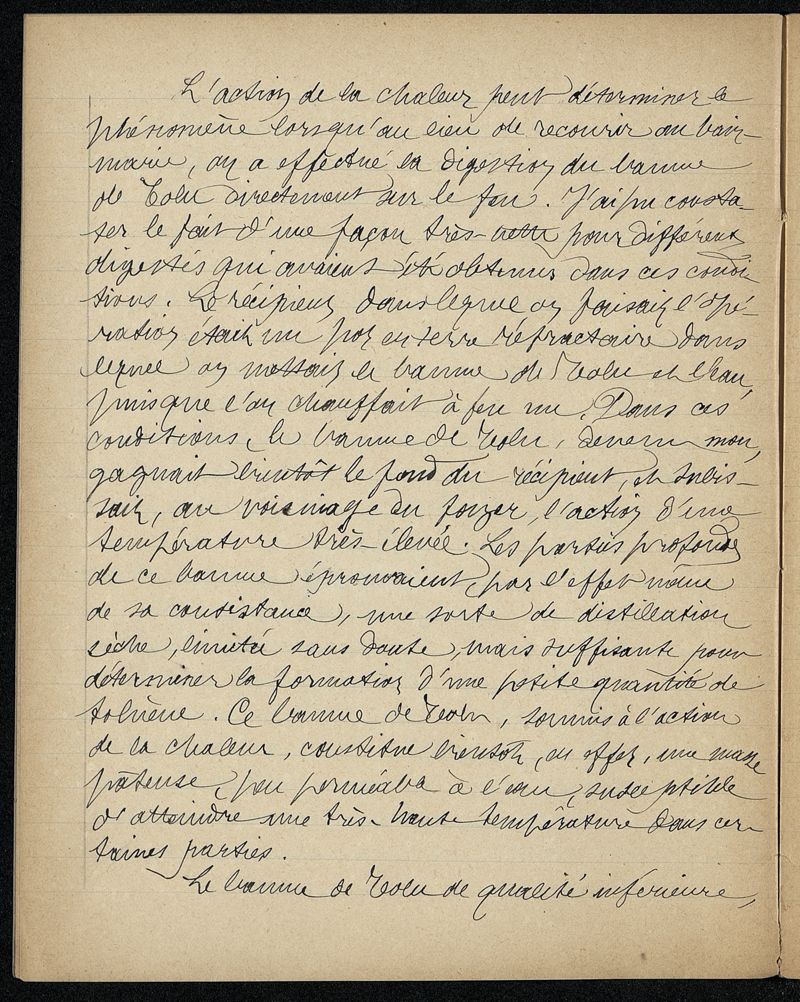 L'action de la chaleur peut déterminer le
phénomène lorsqu'au lieu de recourir au bain-
marie, on a effectué la digestion du baume
de Tolu directement sur le feu. J'ai pu consta-
ter le fait d'une façon très-nette pour différents
digestés qui avaient été obtenus dans ces condi-
tions. Le récipient dans lequel on faisait l'opé-
ration était un pot en terre réfractaire dans
lequel on mettait le baume de Tolu et l'eau,
puis que l'on chauffait à feu nu. Dans ces
conditions, le baume de Tolu, devenu mou,
gagnait bientôt le fond du récipient, et subis-
sait, au voisinage du foyer, l'action d'une
température très-élevée. Les parties profondes
de ce baume éprouvaient, par l'effet même
de sa consistance, une sorte de distillation
sèche, limitée sans doute, mais suffisante pour
déterminer la formation d'une petite quantité de
toluène. Ce baume de Tolu, soumis à l'action
de la chaleur, constitue bientôt, en effet, une masse
pâteuse, peu perméable à l'eau, susceptible
d'atteindre une très-haute température dans cer-
taines parties.
Le baume de Tolu de qualité inférieure,